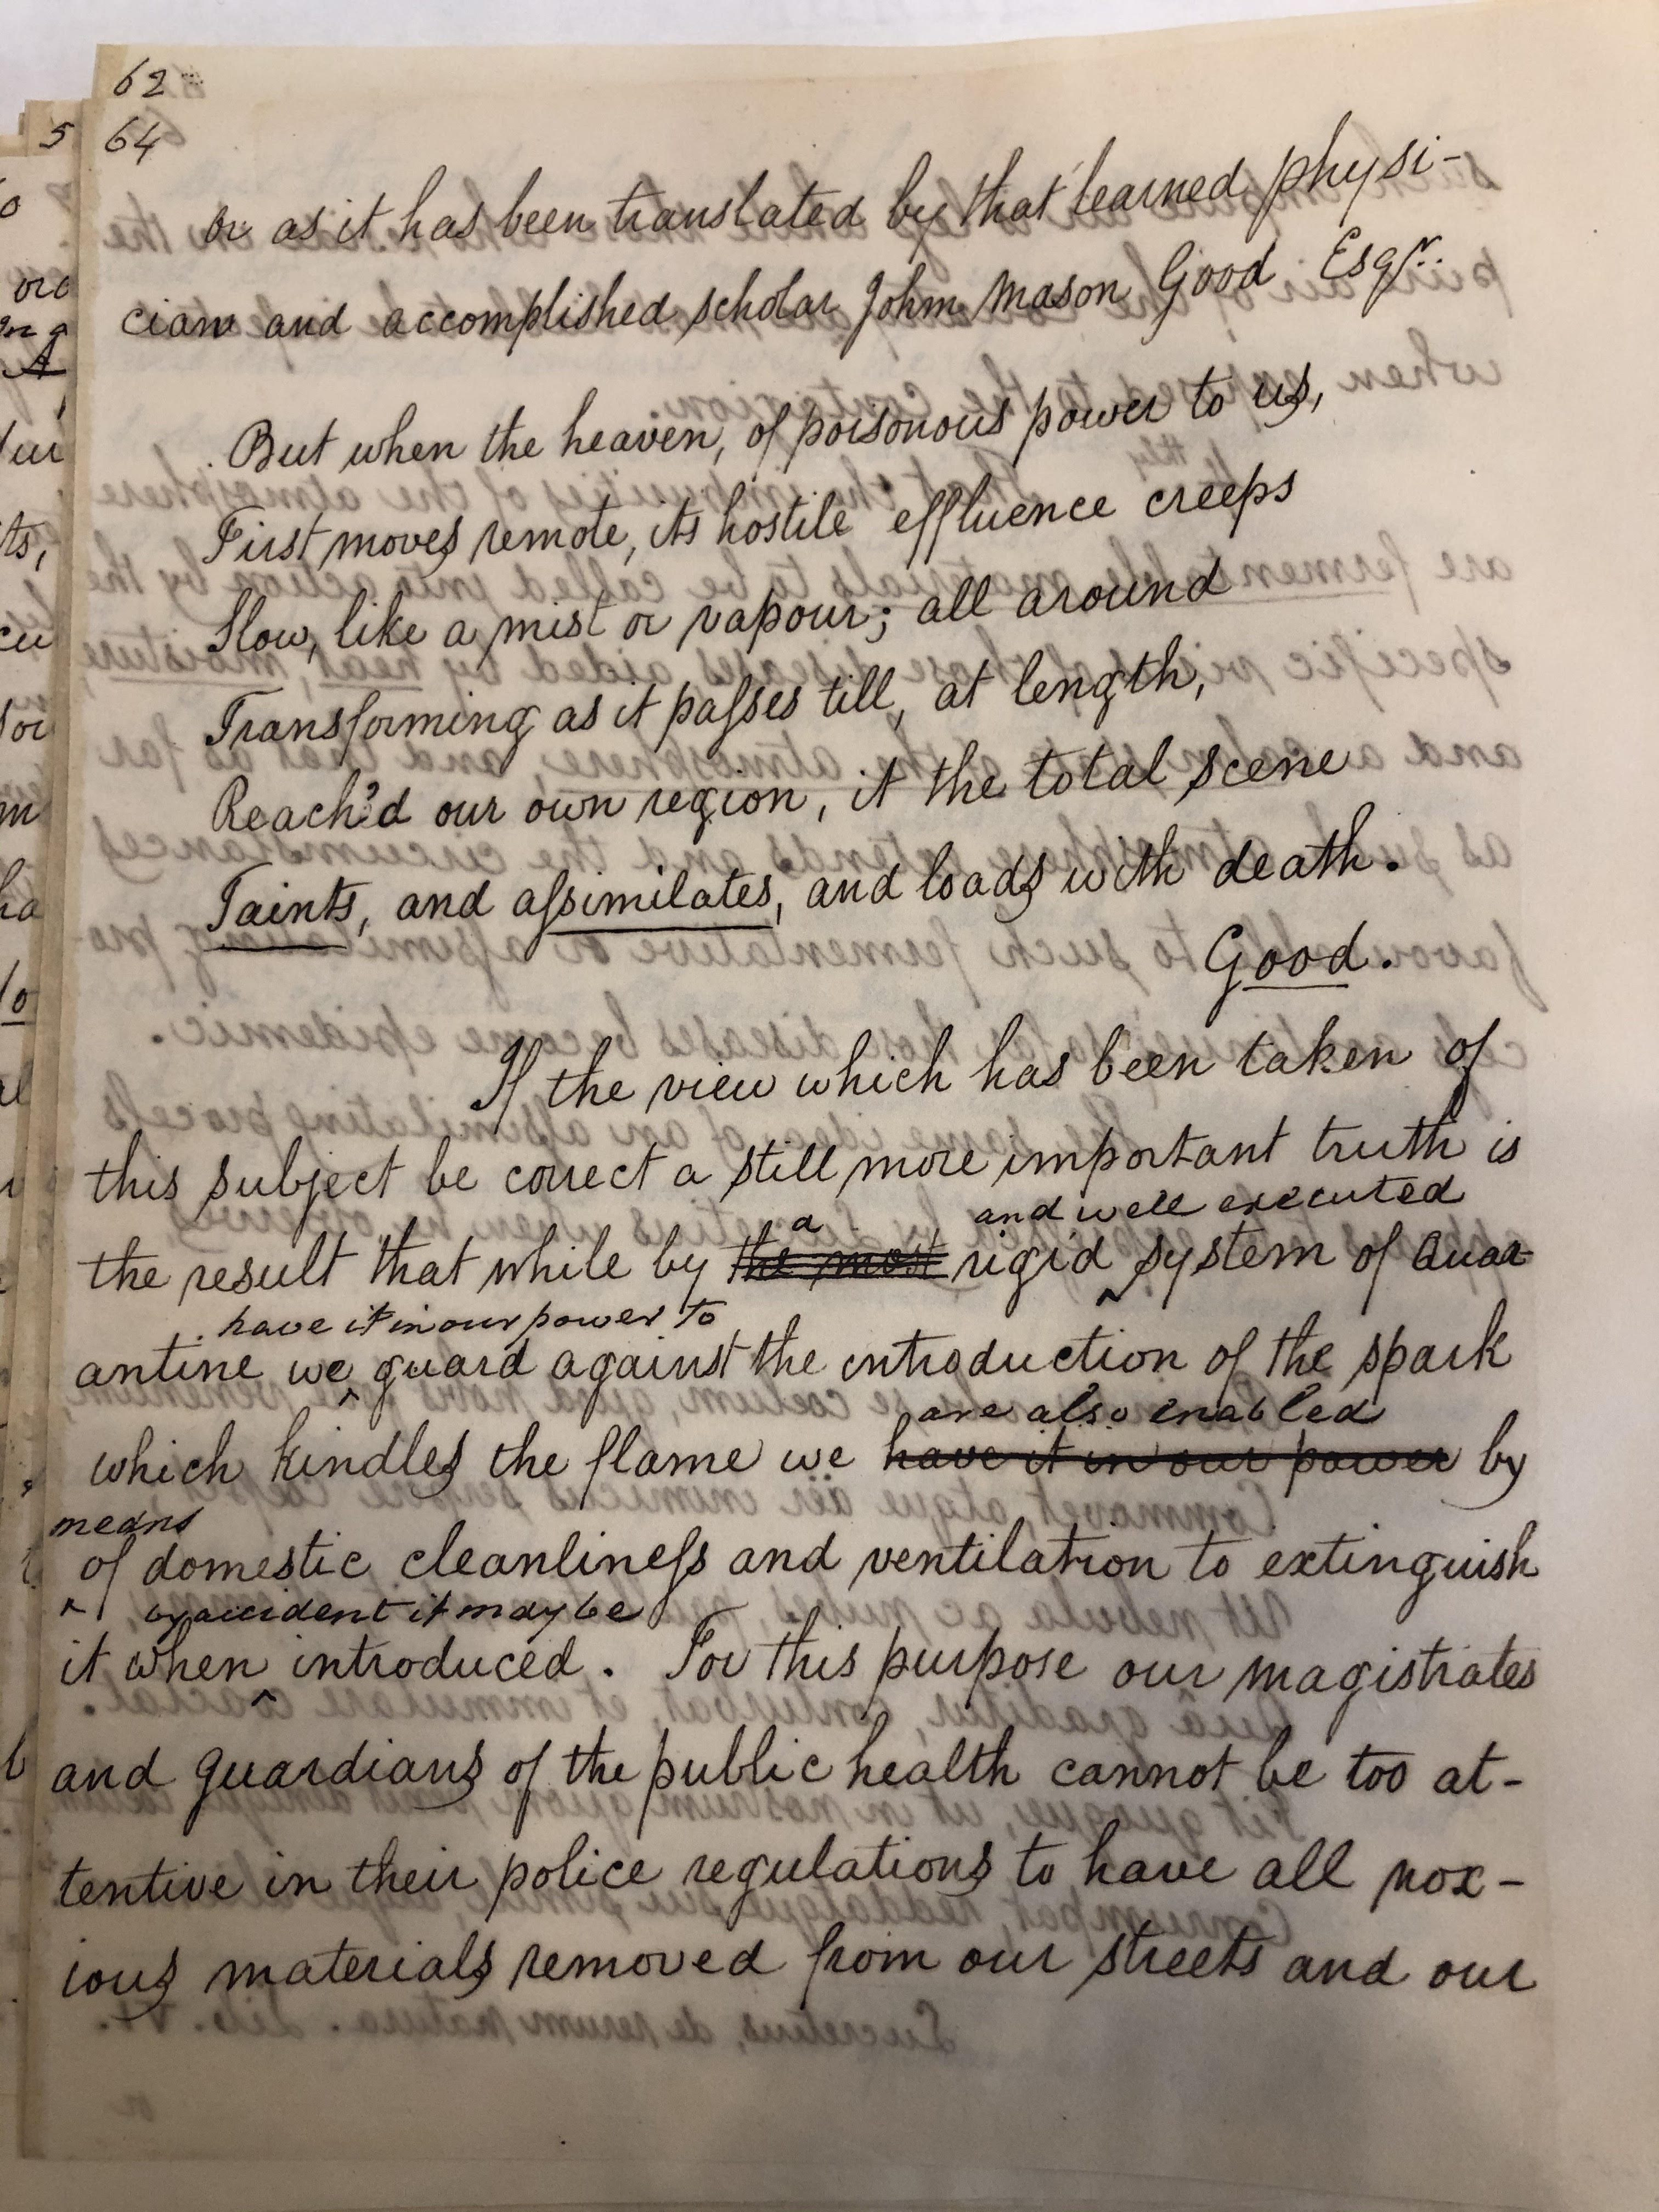 62
64
or as it has been translated by that learned physi-
cian and accomplished scholar John Mason Good Esqr.
But when the heaven, of poisonous power to us,
First moves remote, its hostile effluence creeps
Slow, like a mist or vapour; all around
Transforming as it passes till, at length,
Reach'd our own region, it the total scene
Taints, and assimilates, and loads with death.
Good.
If the view which has been taken of
this subject be correct a still more important truth is
a and well executed
the result that while by the most rigid system of Quar-
have it in our power to
antine we guard against the introduction of the spark
are also enabled
which kindles the flame we have it in our power by
means
of domestic cleanliness and ventilation to extinguish
by accident it may be
it when introduced. For this purpose our magistrates
and guardians of the public health cannot be too at-
tentive in their police regulations to have all nox-
ious materials removed from our streets and our